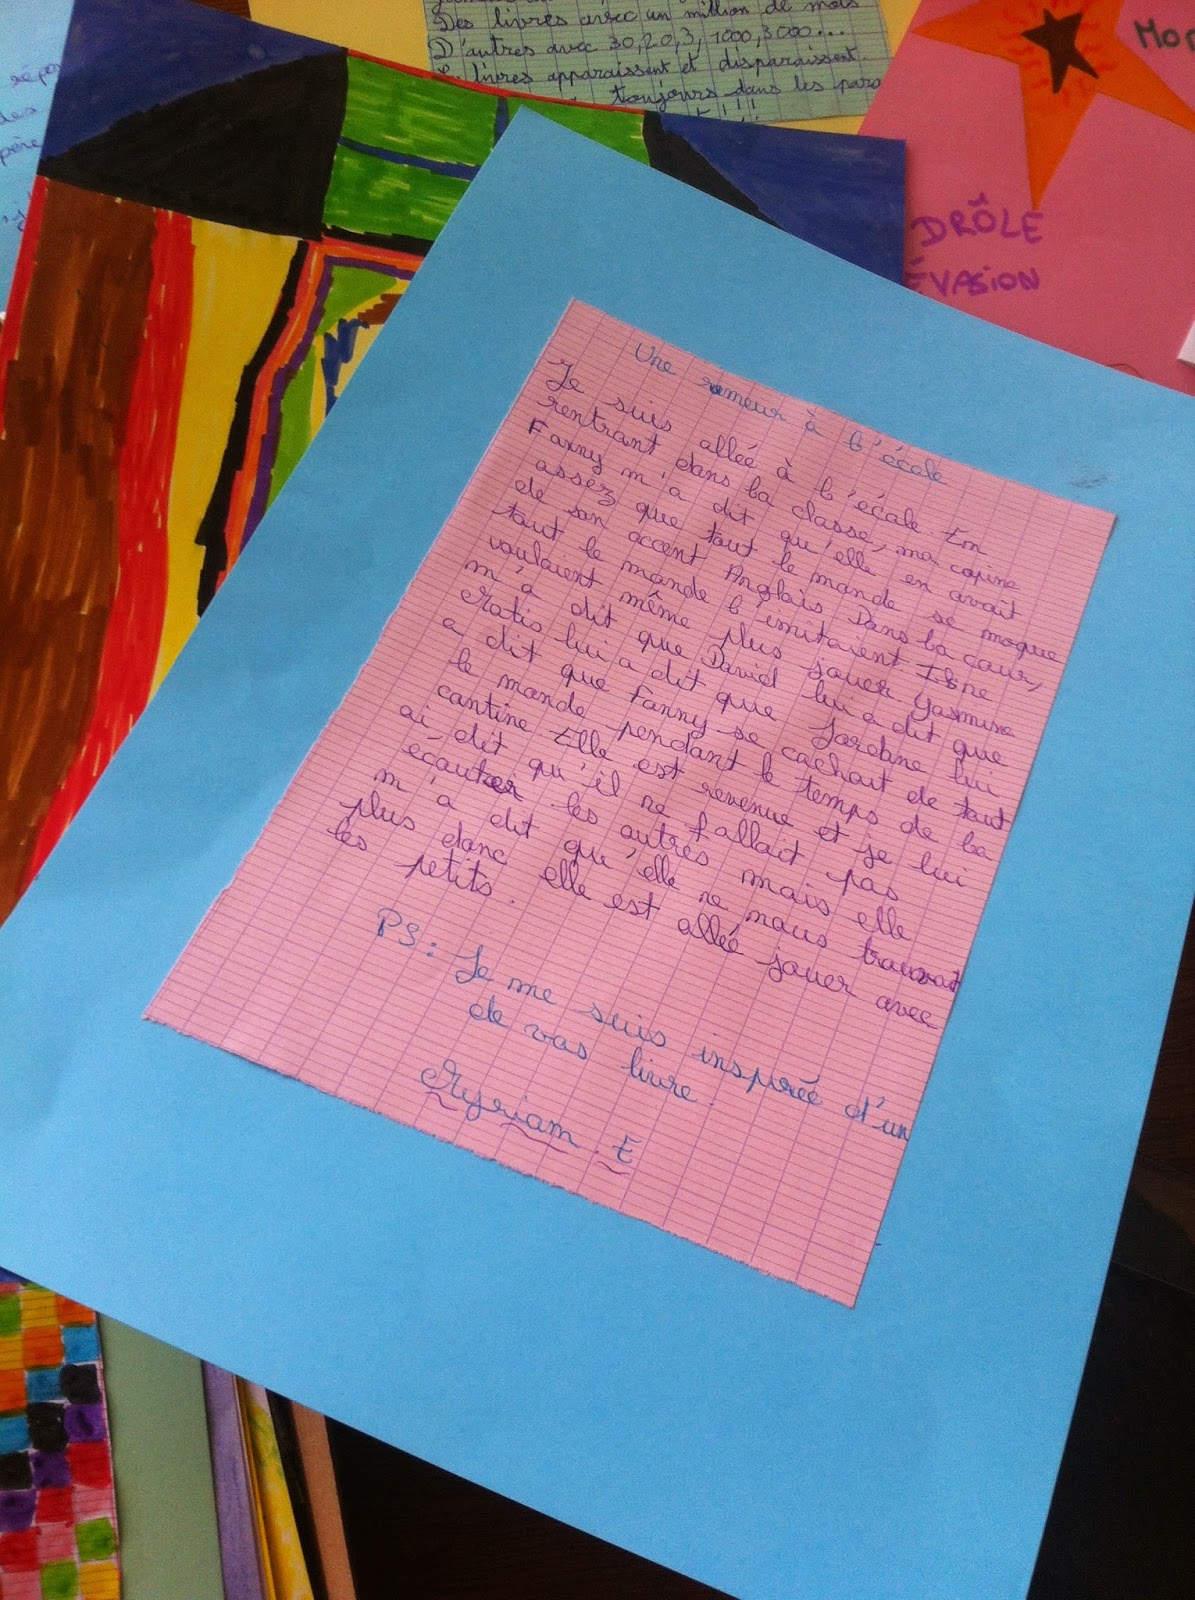 Des livres avec un million de mots
D'autres avec 30, 20, 3, 1000, 3000...
livres apparaissent et disparaissent.
toujours dans les
!!!
DRÔLE
ÉVASION
Une rumeur à l'école
Je suis allée à l'école. En
rentrant dans la classe, ma copine
Fanny m'a dit qu'elle en avait
assez que tout le monde se moque
de son accent Anglais. Dans la cour,
tout le monde l'imitaient. Ils ne
voulaient même plus jouer. Yasmine
m'a dit que David lui a dit que
lui a dit que lui
a dit que Fanny se cachait de tout
le monde pendant le temps de la
cantine. Elle est revenue et je lui
ai dit qu'il ne fallait pas
écouter les autres mais elle
m'a dit qu'elle ne nous trouvait
plus donc elle est allée jouer avec
les petits.
PS: Je me suis inspirée d'un
de vos livre.
Myriam. E